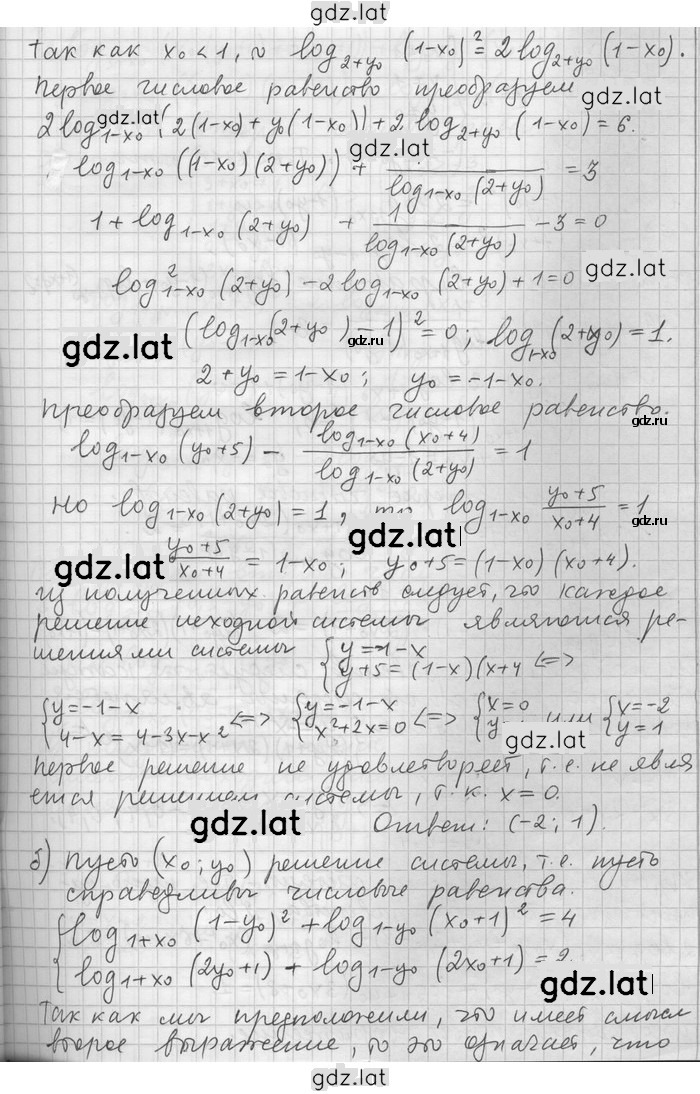 gdz.lat
так как x₀ < 1, то log₂₊y₀ (1-x₀)² = 2 log₂₊y₀ (1-x₀).
Первое числовое равенство преобразуем
gdz.lat
2 log₁₋ₓ₀ (2(1-x₀) + y₀(1-x₀)) + 2 log₂₊y₀ (1-x₀) = 6.
gdz.lat
gdz.lat
log₁₋ₓ₀ ((1-x₀)(2+y₀)) + / log₁₋ₓ₀ (2+y₀) = 3
1 + log₁₋ₓ₀ (2+y₀) + 1 / log₁₋ₓ₀ (2+y₀) - 3 = 0
log²₁₋ₓ₀ (2+y₀) - 2 log₁₋ₓ₀ (2+y₀) + 1 = 0
gdz.lat
(log₁₋ₓ₀ (2+y₀) - 1)² = 0; log₁₋ₓ₀ (2+y₀) = 1.
gdz.lat
gdz.lat
2 + y₀ = 1 - x₀; y₀ = -1 - x₀.
Преобразуем второе числовое равенство.
gdz.lat
log₁₋ₓ₀ (y₀+5) - log₁₋ₓ₀ (x₀+4) / log₁₋ₓ₀ (2+y₀) = 1
Но log₁₋ₓ₀ (2+y₀) = 1, то log₁₋ₓ₀ y₀+5 / x₀+4 = 1
gdz.lat
gdz.lat
gdz.lat
y₀+5 / x₀+4 = 1-x₀; y₀+5 = (1-x₀)(x₀+4).
Из полученных равенств следует, что каждое
решение исходной системы являются ре-
шениями системы { y = -1-x
y+5 = (1-x)(x+4 <=>
{ y = -1-x
4-x = 4-3x-x² <=> { y = -1-x
x²+2x = 0 <=> { x = 0
y = или { x = -2
y = 1
gdz.lat
Первое решение не удовлетворяет, т.е. не явля
ется решением системы, т.к. x = 0.
gdz.lat
Ответ: (-2; 1).
б) Пусть (x₀; y₀) решение системы, т.е. пусть
справедливы числовые равенства.
{ log₁₊ₓ₀ (1-y₀)² + log₁₋y₀ (x₀+1)² = 4
log₁₊ₓ₀ (2y₀+1) + log₁₋y₀ (2x₀+1) = 2.
gdz.lat
Так как мы предположили, что имеет смысл
второе выражение, то это означает, что
gdz.lat